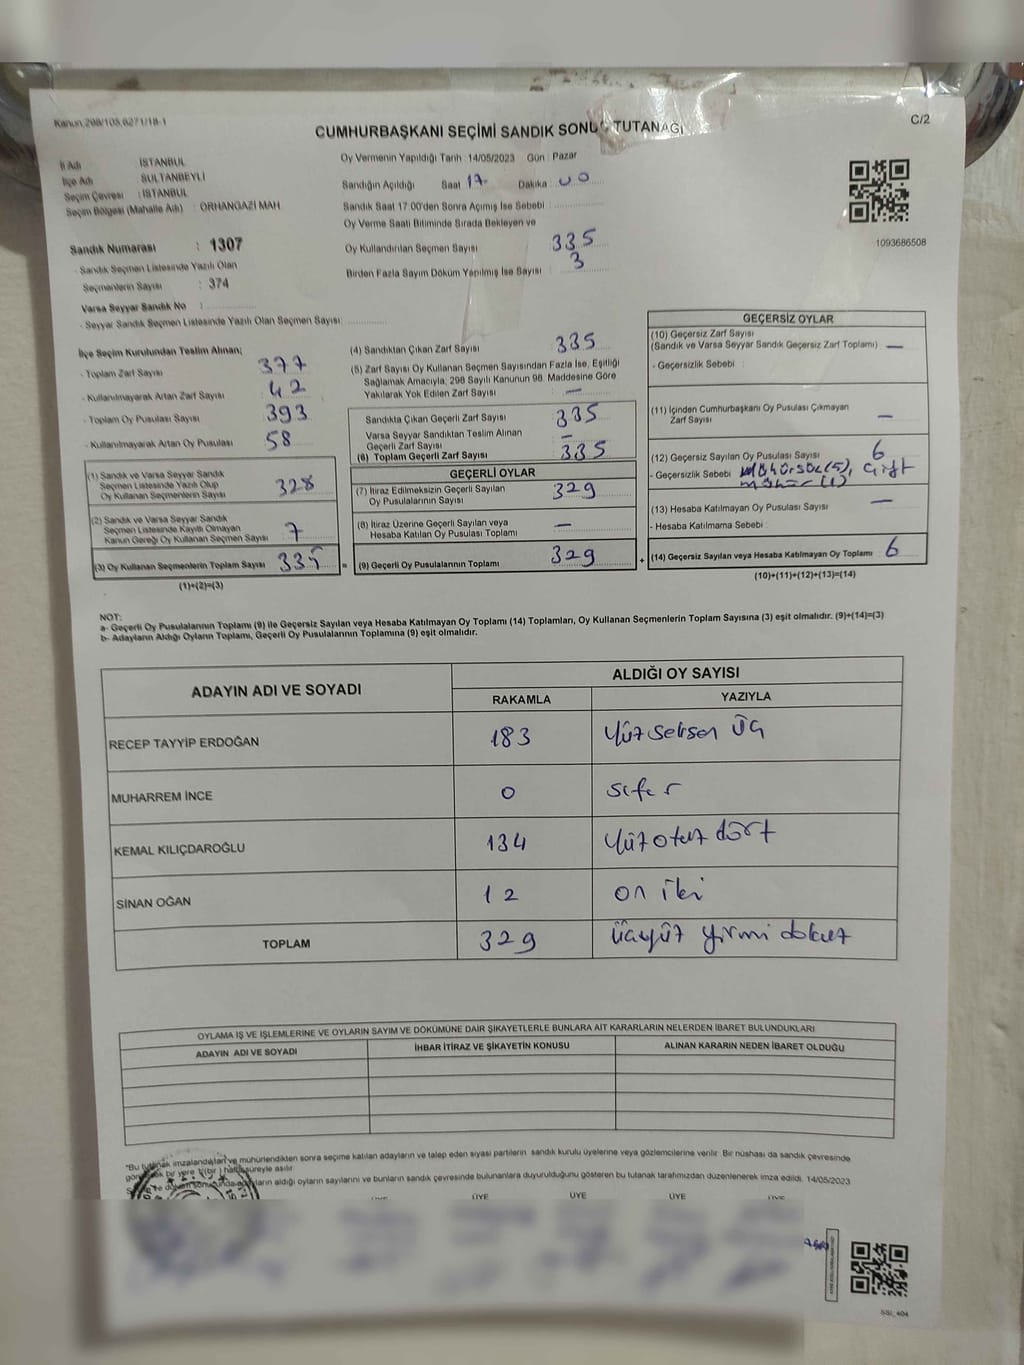 Kanun:298/105,6271/18-1
C/2
CUMHURBAŞKANI SEÇİMİ SANDIK SONUÇ TUTANAĞI
İl Adı İSTANBUL
İlçe Adı SULTANBEYLİ
Seçim Çevresi : İSTANBUL
Seçim Bölgesi (Mahalle Adı) : ORHANGAZİ MAH
Oy Vermenin Yapıldığı Tarih : 14/05/2023 Gün : Pazar
Sandığın Açıldığı Saat 17 Dakika : 00
Sandık Saat 17:00'den Sonra Açımış İse Sebebi :
Oy Verme Saati Bitiminde Sırada Bekleyen ve
Oy Kullandırılan Seçmen Sayısı 335
Birden Fazla Sayım Döküm Yapılmış İse Sayısı : 3
1093686508
Sandık Numarası : 1307
- Sandık Seçmen Listesinde Yazılı Olan
Seçmenlerin Sayısı : 374
Varsa Seyyar Sandık No :
- Seyyar Sandık Seçmen Listesinde Yazılı Olan Seçmen Sayısı:
İlçe Seçim Kurulundan Teslim Alınan;
- Toplam Zarf Sayısı 377
- Kullanılmayarak Artan Zarf Sayısı 42
- Toplam Oy Pusulası Sayısı 393
- Kullanılmayarak Artan Oy Pusulası 58
(1) Sandık ve Varsa Seyyar Sandık
Seçmen Listesinde Yazılı Olup
Oy Kullanan Seçmenlerin Sayısı 328
(2) Sandık ve Varsa Seyyar Sandık
Seçmen Listesinde Kayıtlı Olmayan
Kanun Gereği Oy Kullanan Seçmen Sayısı 7
(3) Oy Kullanan Seçmenlerin Toplam Sayısı 335 =
(1)+(2)=(3)
(4) Sandıktan Çıkan Zarf Sayısı 335
(5) Zarf Sayısı Oy Kullanan Seçmen Sayısından Fazla İse, Eşitliği
Sağlamak Amacıyla, 298 Sayılı Kanunun 98. Maddesine Göre
Yakılarak Yok Edilen Zarf Sayısı : —
Sandıkta Çıkan Geçerli Zarf Sayısı 335
Varsa Seyyar Sandıktan Teslim Alınan
Geçerli Zarf Sayısı : —
(6) Toplam Geçerli Zarf Sayısı 335
GEÇERLİ OYLAR
(7) İtiraz Edilmeksizin Geçerli Sayılan
Oy Pusulalarının Sayısı 329
(8) İtiraz Üzerine Geçerli Sayılan veya
Hesaba Katılan Oy Pusulası Toplamı —
(9) Geçerli Oy Pusulalarının Toplamı 329 +
GEÇERSİZ OYLAR
(10) Geçersiz Zarf Sayısı
(Sandık ve Varsa Seyyar Sandık Geçersiz Zarf Toplamı) —
- Geçersizlik Sebebi :
(11) İçinden Cumhurbaşkanı Oy Pusulası Çıkmayan
Zarf Sayısı —
(12) Geçersiz Sayılan Oy Pusulası Sayısı 6
- Geçersizlik Sebebi : Mühürsüz (5), Çift
mühür (1)
(13) Hesaba Katılmayan Oy Pusulası Sayısı —
- Hesaba Katılmama Sebebi :
(14) Geçersiz Sayılan veya Hesaba Katılmayan Oy Toplamı 6
(10)+(11)+(12)+(13)=(14)
NOT:
a- Geçerli Oy Pusulalarının Toplamı (9) ile Geçersiz Sayılan veya Hesaba Katılmayan Oy Toplamı (14) Toplamları, Oy Kullanan Seçmenlerin Toplam Sayısına (3) eşit olmalıdır. (9)+(14)=(3)
b- Adayların Aldığı Oyların Toplamı, Geçerli Oy Pusulalarının Toplamına (9) eşit olmalıdır.
ADAYIN ADI VE SOYADI
ALDIĞI OY SAYISI
RAKAMLA YAZIYLA
RECEP TAYYİP ERDOĞAN 183 Yüz seksen üç
MUHARREM İNCE 0 sıfır
KEMAL KILIÇDAROĞLU 134 Yüz otuz dört
SİNAN OĞAN 12 on iki
TOPLAM 329 üçyüz yirmi dokuz
OYLAMA İŞ VE İŞLEMLERİNE VE OYLARIN SAYIM VE DÖKÜMÜNE DAİR ŞİKAYETLERLE BUNLARA AİT KARARLARIN NELERDEN İBARET BULUNDUKLARI
ADAYIN ADI VE SOYADI İHBAR İTİRAZ VE ŞİKAYETİN KONUSU ALINAN KARARIN NEDEN İBARET OLDUĞU
*Bu tutanak imzalandıktan ve mühürlendikten sonra seçime katılan adayların ve talep eden siyasi partilerin sandık kurulu üyelerine veya gözlemcilerine verilir. Bir nüshası da sandık çevresinde
bir yere 1(bir) hafta süreyle asılır.
aldığı oyların sayılarını ve bunların sandık çevresinde bulunanlara duyurulduğunu gösteren bu tutanak tarafımızdan düzenlenerek imza edildi. 14/05/2023
ÜYE ÜYE ÜYE ÜYE ÜYE
SSİ_404